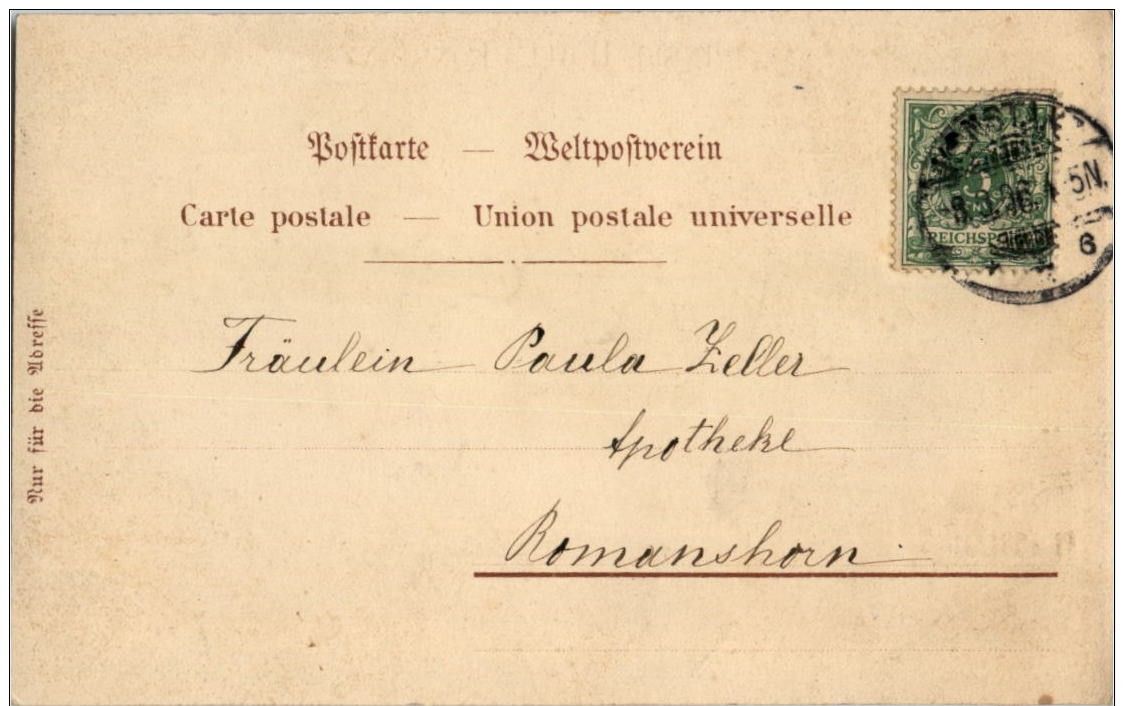 Postkarte — Weltpostverein
Carte postale — Union postale universelle
5
REICHSPOST
5N.
6
Nur für die Adresse
Fräulein Paula Zeller
Apotheke
Romanshorn.